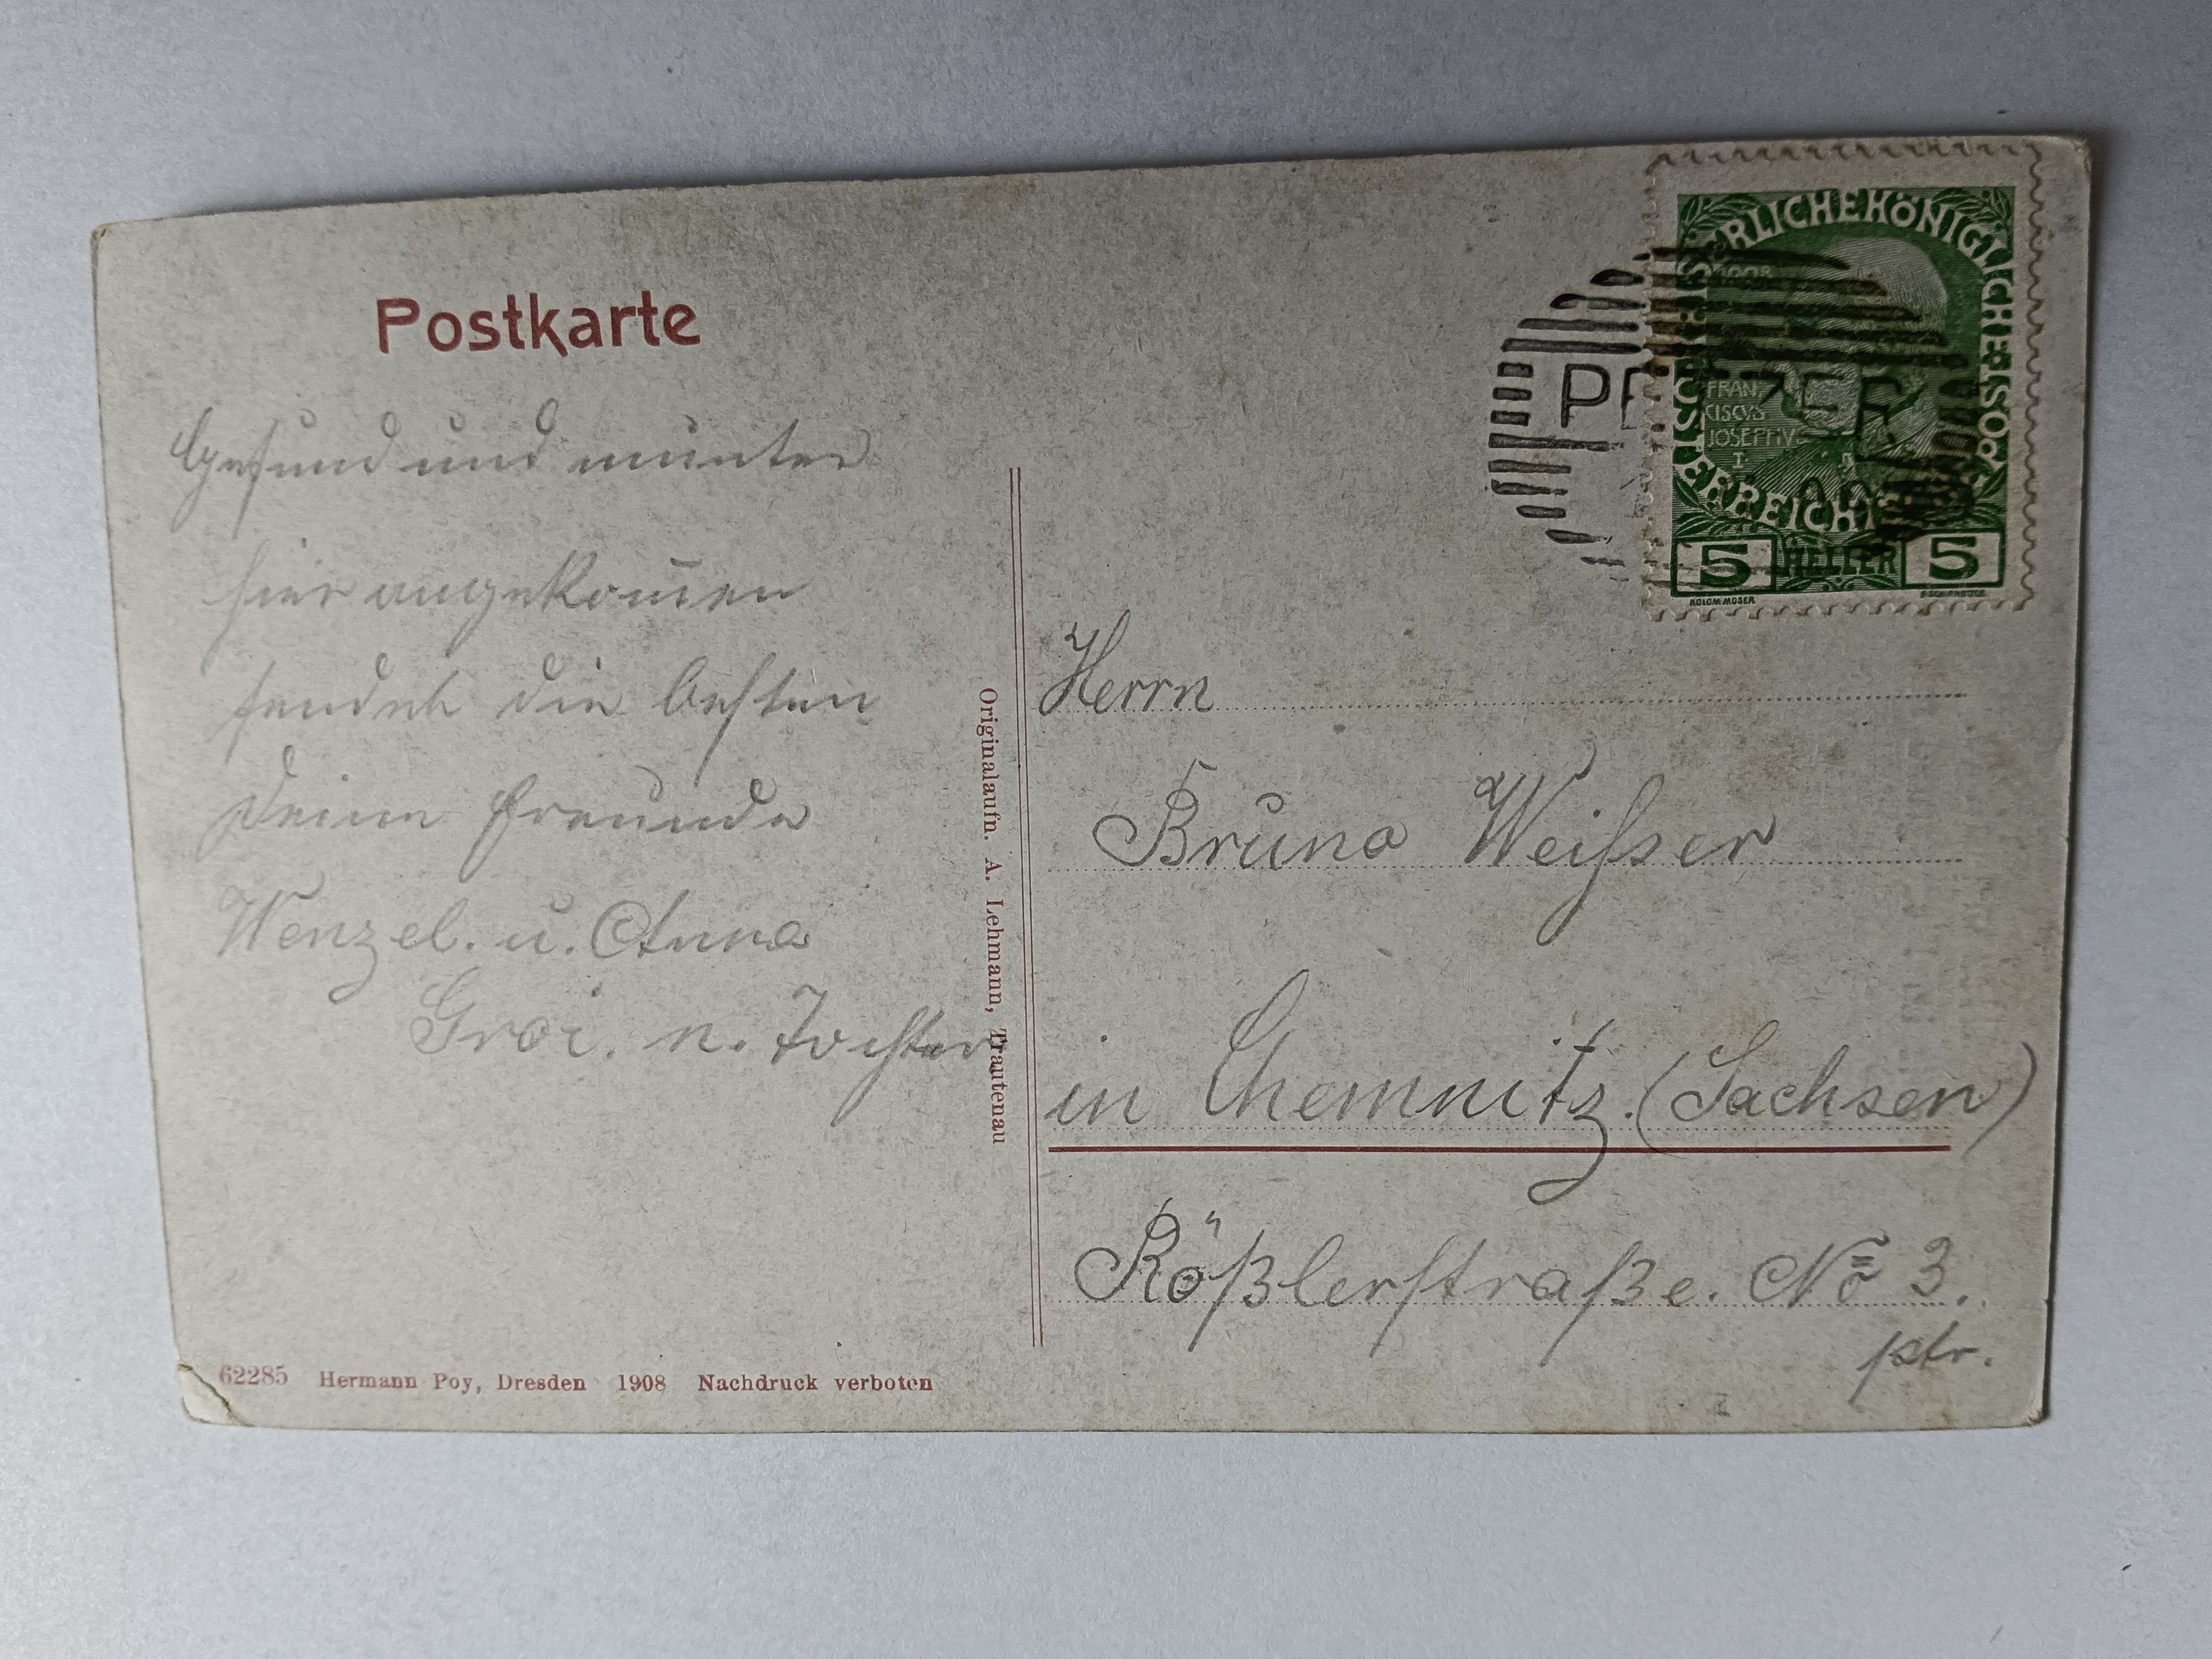 Postkarte
Gesund und munter
hier angekom̄en
sendet die besten
Deine Freunde
Wenzel. u. Anna
n. Tochter
Originalaufn. A. Lehmann, Trautenau
62285 Hermann Poy, Dresden 1908 Nachdruck verboten
KAISERLICHE KÖNIGLICHE ÖSTERREICHISCHE POST
1908
FRAN
CISCVS
JOSEPHVS
I
5 HELLER 5
KOLOM.MOSER
PETZER
Herrn
Bruno Weißer
in Chemnitz. (Sachsen)
Rößlerstraße. No 3.
ptr.